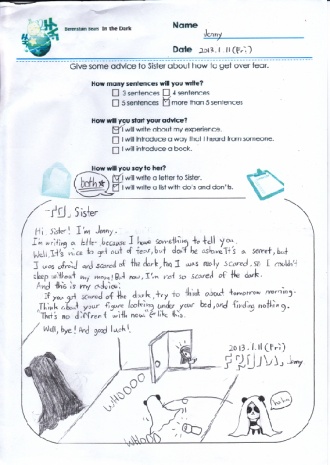 Berenstain Bears In the Dark
Name Jenny
Date 2013.1.11(Fri)
Give some advice to Sister about how to get over fear.
How many sentences will you write?
3 sentences 4 sentences
5 sentences more than 5 sentences
How will you start your advice?
I will write about my experience.
I will introduce a way that I heard from someone.
I will introduce a book.
How will you say to her?
both
I will write a letter to Sister.
I will write a list with do's and don'ts.
TO. Sister
Hi Sister! I'm Jenny.
I'm writing a letter because I have something to tell you.
Well, It's nice to get out of fear, but don't be It's a secret, but
I was afraid and scared of the dark, too I was really scared, so I couldn't
sleep without my mom! But now, I'm not so scared of the dark.
And this is my advice:
If you get scared of the dark, try to think about tomorrow morning.
Think about your figure looking under your bed, and finding nothing.
"That's no diffrent with now" like this.
Well, bye! And good luck!
2013.1.11(Fri)
FROM. Jenny
WHOOOO
WHOOO
haha